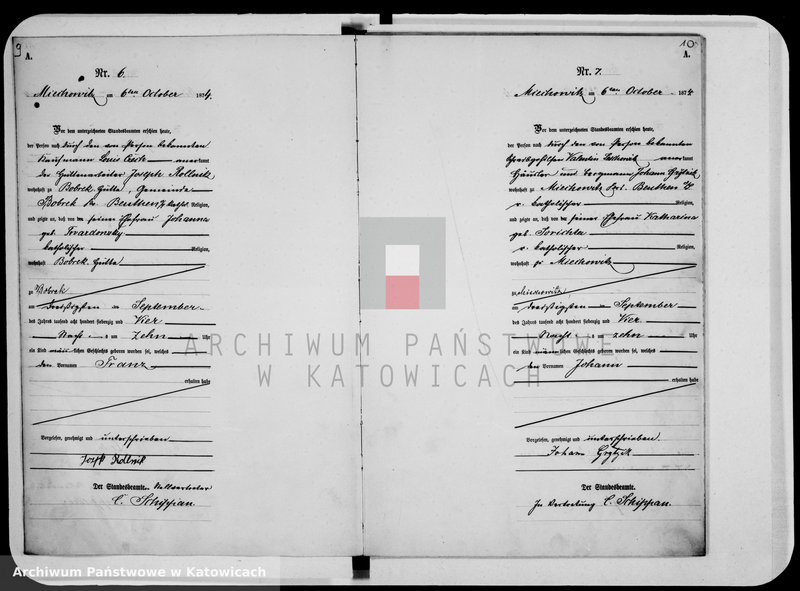 9
A.
Nr. 6.
Miechowitz am 6ten October 1874.
Vor dem unterzeichneten Standesbeamten erschien heute,
der Person nach durch den von Person bekannten
Kaufmann Louis anerkannt
der Hüttenarbeiter Joseph
wohnhaft zu Bobrek Hütte, Gemeinde
Bobrek bei Beuthen kathol. Religion,
und zeigte an, daß von seiner Ehefrau Johanna
geb. Twardowsky
katholischer Religion,
wohnhaft Bobrek Hütte
zu Bobrek
am dreißigsten September
des Jahres tausend acht hundert siebenzig und Vier
Nachts um zehn Uhr
ein Kind männlichen Geschlechts geboren worden sei, welches
den Vornamen Franz
erhalten habe
Vorgelesen, genehmigt und unterschrieben
Der Standesbeamte. Stellvertreter
C. Schippan
10
A.
Nr. 7.
Miechowitz am 6ten October 1874
Vor dem unterzeichneten Standesbeamten erschien heute,
der Person nach durch den von Person bekannten
Valentin anerkannt
Häusler und Bergmann Johann Grytzik
wohnhaft zu Miechowitz Beuthen
katholischer Religion,
und zeigte an, daß von seiner Ehefrau Katharina
geb.
katholischer Religion,
wohnhaft zu Miechowitz
zu Miechowitz
am dreißigsten September
des Jahres tausend acht hundert siebenzig und Vier
Nachts um zehn Uhr
ein Kind männlichen Geschlechts geboren worden sei, welches
den Vornamen Johann
erhalten habe
Vorgelesen, genehmigt und unterschrieben.
Johann Grytzik
Der Standesbeamte.
In Vertretung C. Schippan.
ARCHIWUM PAŃSTWOWE
W KATOWICACH
Archiwum Państwowe w Katowicach